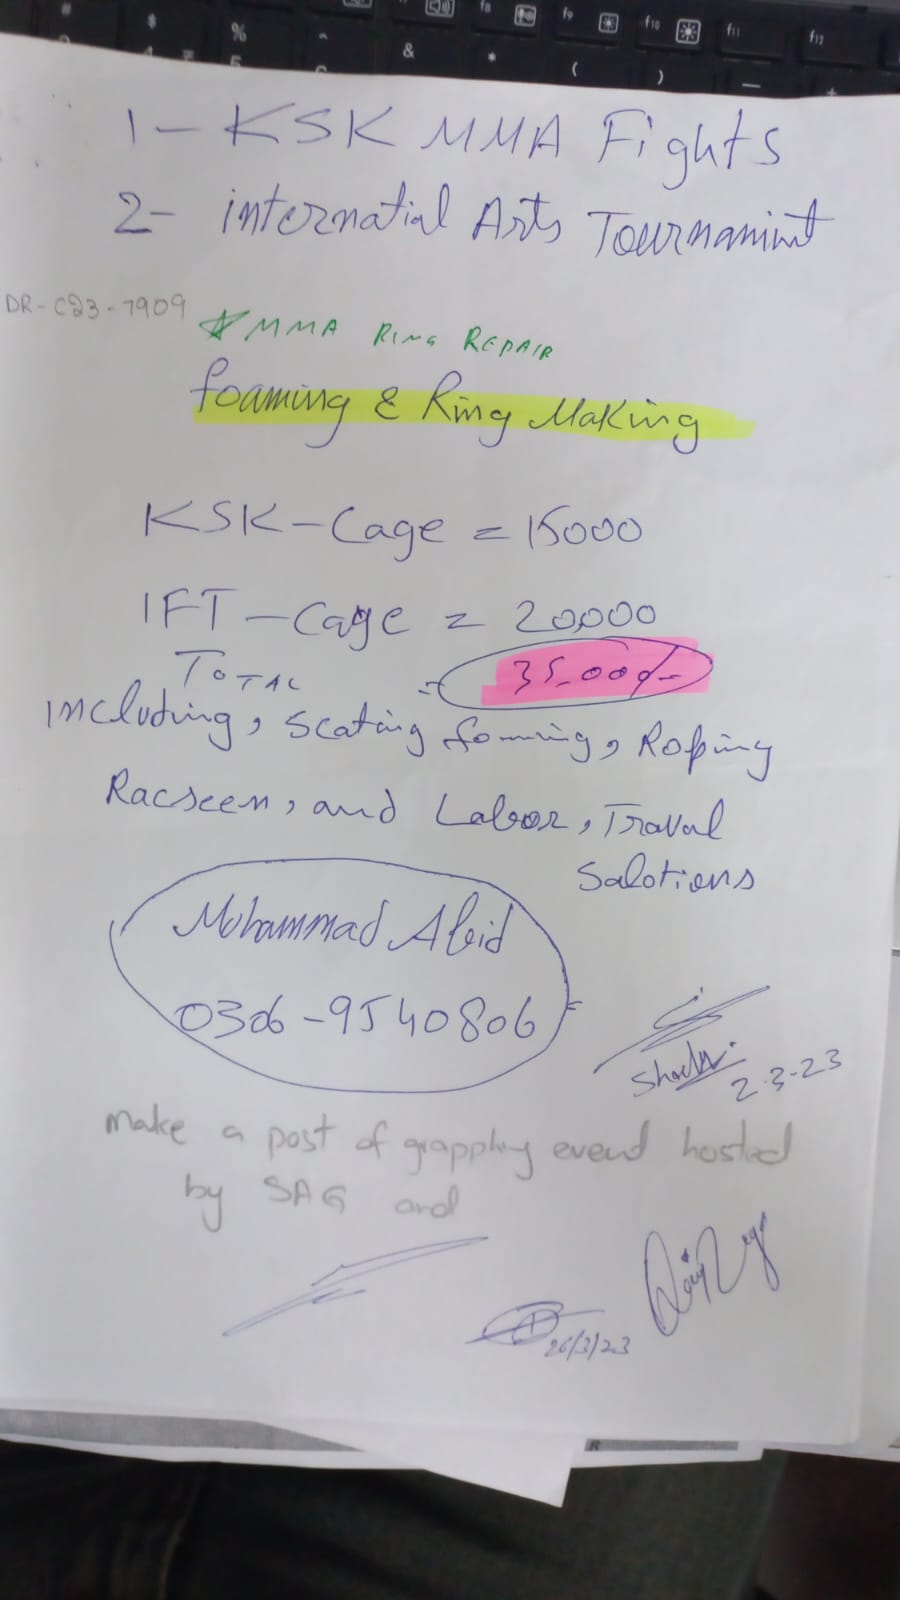 1- KSK MMA Fights
2- internatial Arts Tournamint
DR-C23-7909
MMA RING REPAIR
foaming & Ring Making
KSK-Cage = 15000
IFT-Cage = 20,000
TOTAL = 35,000/-
including, Seating foming, Roping
Racseen, and Labor, Traval
Salotions
Mohammad Abid
0306-9540806
2-3-23
make a post of grappling evend hosted
by SAG and
26/3/23